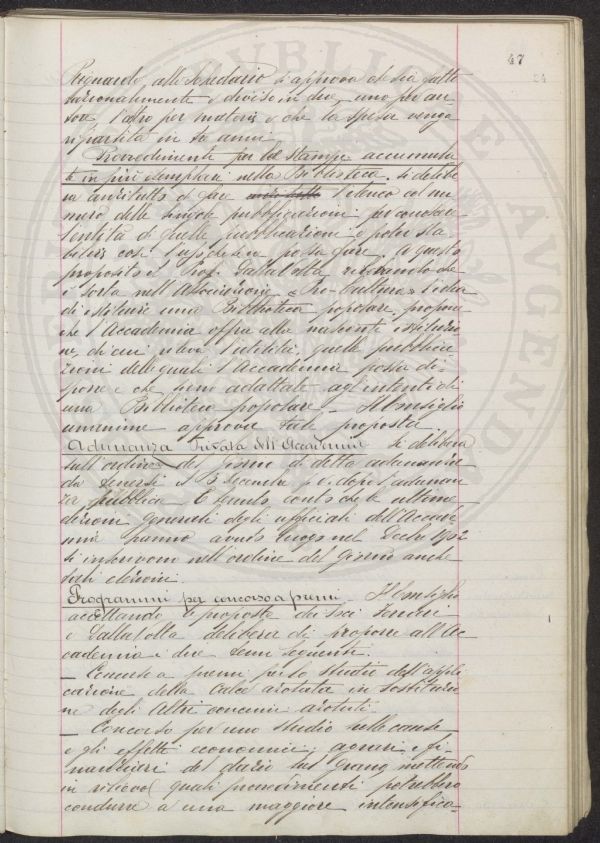 47
24
Riguardo allo Schedario si approva che sia fatto
razionalmente e diviso in due, uno per au-
tore l'altro per materie e che la spesa venga
ripartita in tre anni.
Provvedimenti per le stampe accumula-
te in più esemplari nella Biblioteca. Si delibe-
ra anzitutto di fare l'elenco col nu-
mero delle singole pubblicazioni per conoscere
l'entità di quelle pubblicazioni e poter sta-
bilire così l'uso che se ne possa fare. A questo
proposito il Prof. Dalla Volta ricordando che
è sorta nell'Associazione "Pro Cultura" l'idea
di istituire una Biblioteca popolare, propone
che l'Accademia offra alla nascente istituzio-
ne, di cui rileva l'utilità, quelle pubblica-
zioni delle quali l'Accademia possa di-
sporre e che siano adattate agl'intenti di
una Biblioteca popolare. Il Consiglio
unanime approva tale proposta.
Adunanza Privata dell'Accademia Si delibera
sull'ordine del giorno di detta adunanza
da tenersi il 13 Decembre, dopo l'adunan-
za pubblica. E tenuto conto che le ultime
elezioni generali degli ufficiali dell'Accade-
mia hanno avuto luogo nel Decbre 1902
si inseriscono nell'ordine del giorno anche
tali elezioni.
Programmi per concorso a premi. Il Consiglio
accettando le proposte dei Soci
e Dalla Volta delibera di proporre all'Ac-
cademia i due temi seguenti.
— Concorso a premi per lo studio dell'appli-
cazione della calce azotata in sostituzio-
ne degli altri concimi azotati.
— Concorso per uno studio sulle cause
e gli effetti economici, agrari e fi-
nanziari del dazio sul grano mettendo
in rilievo quali provvedimenti potrebbero
condurre a una maggiore intensifica-